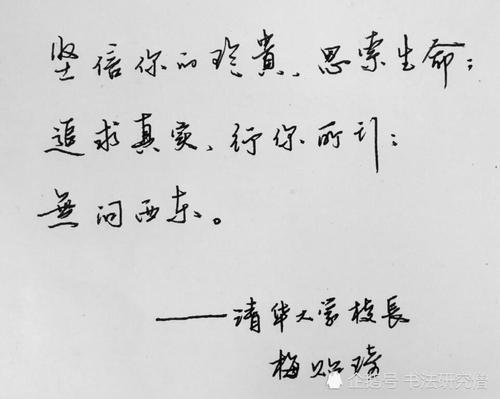 坚信你的珍貴、思索生命；
追求真实、行你所行；
無问西东。
——清华大学校長
梅贻琦
企鹅号 书法研究僧